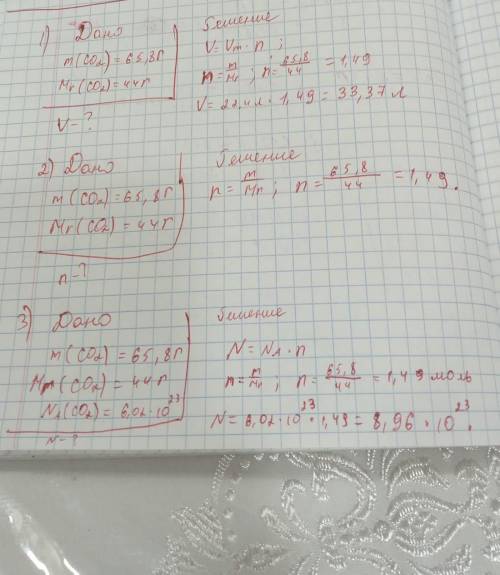 1) Дано
m(CO2) = 65,8г
Mr(CO2) = 44г
V = ?
Решение
V = Vm · n ;
n = m/Mr ; n = 65,8/44 = 1,49
V = 22,4л · 1,49 = 33,37 л
2) Дано
m(CO2) = 65,8г
Mr(CO2) = 44г
n = ?
Решение
n = m/Mr ; n = 65,8/44 = 1,49.
3) Дано
m(CO2) = 65,8г
Mr(CO2) = 44г
NA(CO2) = 6,02·10^23
N = ?
Решение
N = NA · n
n = m/Mr ; n = 65,8/44 = 1,49 моль
N = 6,02·10^23 · 1,49 = 8,96 · 10^23.